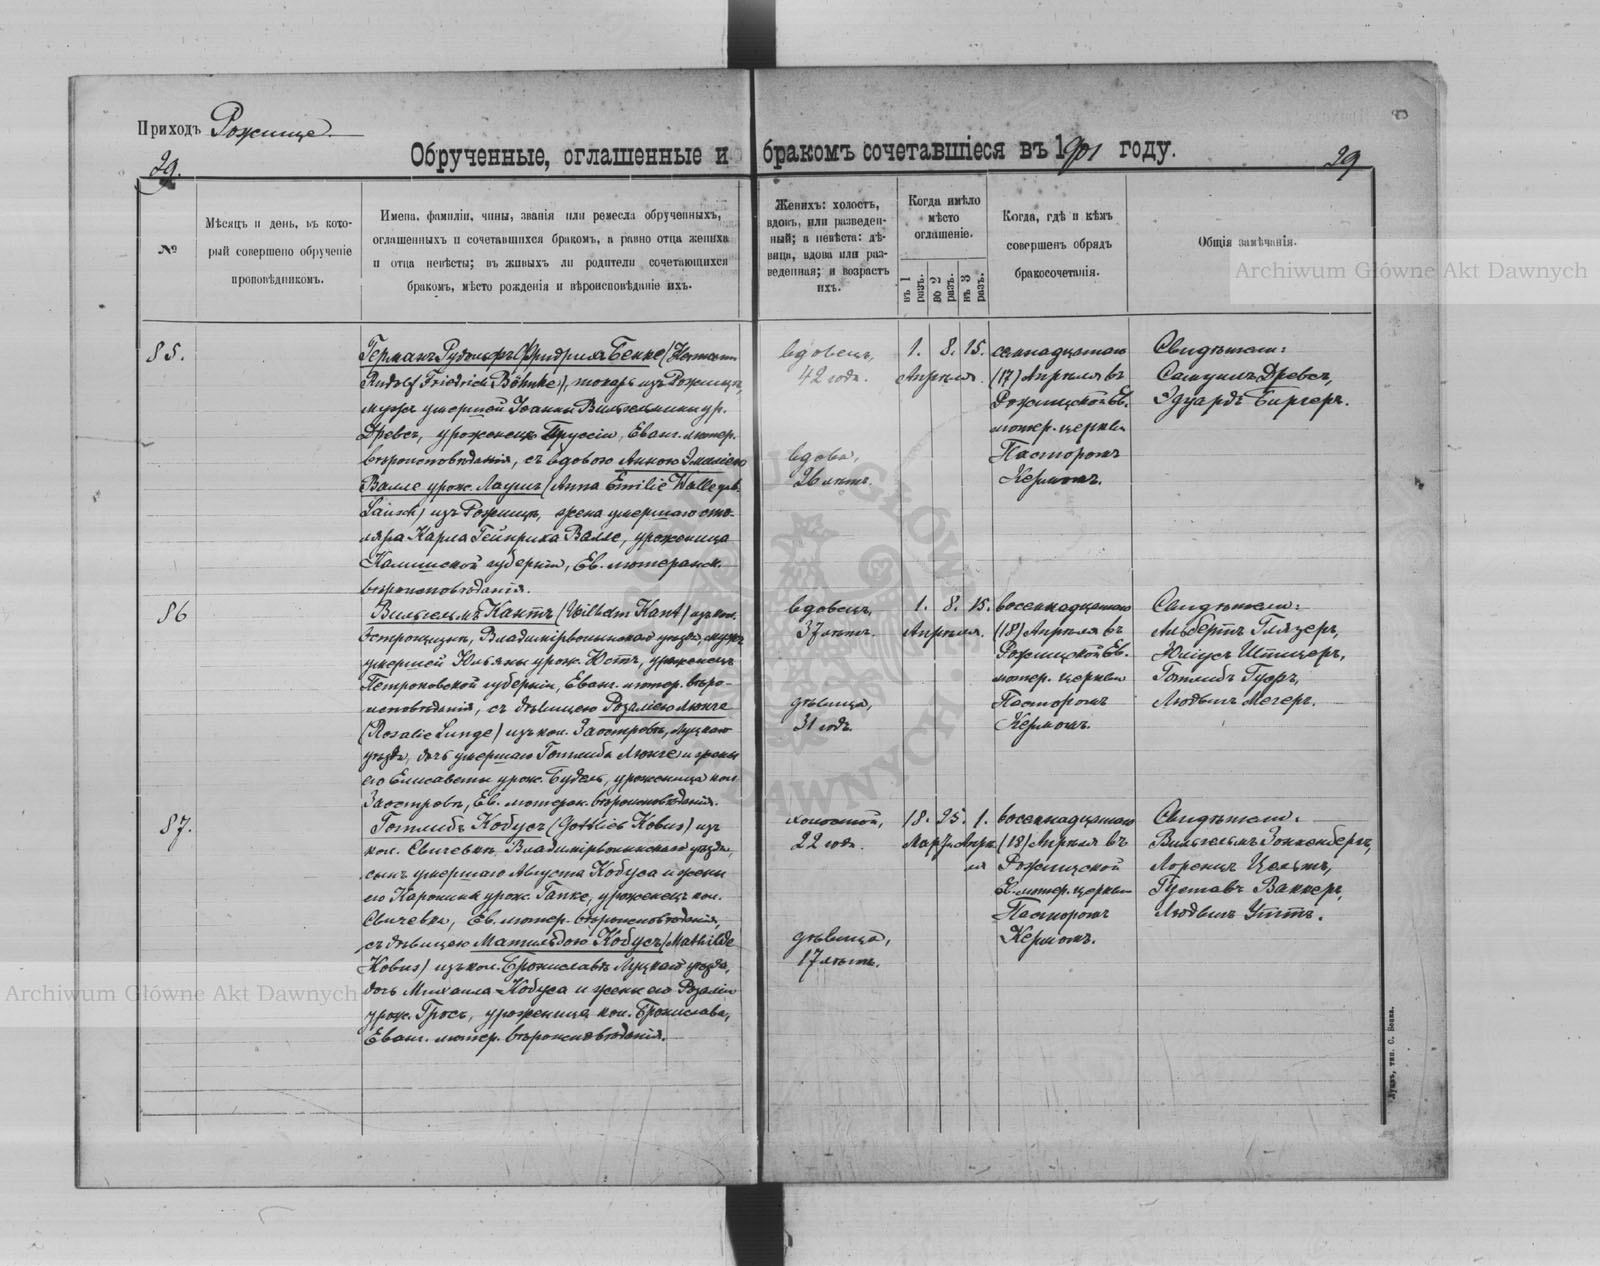 Приходъ Рожище.
29.
Обрученные, оглашенные и бракомъ сочетавшіеся въ 1901 году.
29
№
Мѣсяцъ и день, въ кото-
рый совершено обрученіе
проповѣдникомъ.
Имена, фамиліи, чины, званія или ремесла обрученныхъ,
оглашенныхъ и сочетавшихся бракомъ, а равно отца жениха
и отца невѣсты; въ живыхъ ли родители сочетающихся
бракомъ, мѣсто рожденія и вѣроисповѣданіе ихъ.
Женихъ: холостъ,
вдовъ, или разведен-
ный; а невѣста: дѣ-
вица, вдова или раз-
веденная; и возрастъ
ихъ.
Когда имѣло
мѣсто
оглашеніе.
въ 1 разъ.
во 2 разъ.
въ 3 разъ.
Когда, гдѣ и кѣмъ
совершенъ обрядъ
бракосочетанія.
Общія замѣчанія.
Archiwum Główne Akt Dawnych
85.
Германъ Рудольфъ Фридрихъ Бенке (Hermann
Rudolf Friedrich Böhnke), токарь изъ Рожищъ,
мужъ умершей Іоанны Вильгельмины ур.
Древсъ, уроженецъ Пруссіи, Еванг. лютер.
вѣроисповѣданія, съ вдовою Анною Эмиліею
Валле урож. Лаушъ (Anna Emilie Walle geb.
Lausch) изъ Рожищъ, жена умершаго сто-
ляра Карла Гейнриха Валле, уроженица
Калишской губерніи, Ев. лютеранск.
вѣроисповѣданія.
вдовецъ,
42 годъ.
вдова,
26 лѣтъ.
1. 8. 15.
Апрѣля.
семнадцатаго
(17) Апрѣля въ
Рожищской Ев.
лютер. церкви
Пасторомъ
Керномъ.
Свидѣтели:
Самуилъ Древсъ,
Эдуардъ Биргеръ.
86
Вильгельмъ Кантъ (Wilhelm Kant) изъ кол.
Владимірволынскаго уѣзда, мужъ
умершей Юльяны урож. Юстъ, уроженецъ
Петроковской губерніи, Еванг. лютер. вѣро-
исповѣданія, съ дѣвицею Розаліею Люнге
(Rosalie Lunge) изъ кол. Заостровъ, Луцкаго
уѣзда, дочь умершаго Готлиба Люнге и жены
его Елисаветы урож. Будель, уроженица кол.
Заостровъ, Ев. лютеран. вѣроисповѣданія.
вдовецъ,
37 лѣтъ.
дѣвица,
31 годъ.
1. 8. 15.
Апрѣля.
восемнадцатаго
(18) Апрѣля въ
Рожищской Ев.
лютер. церкви
Пасторомъ
Керномъ.
Свидѣтели:
Альбертъ Глязеръ,
Юліусъ Штицеръ,
Готлибъ Гузръ,
Людвигъ Мегеръ.
87.
Готлибъ Кобусъ (Gottlieb Kobus) изъ
кол. Свичевкъ, Владимірволынскаго уѣзда,
сынъ умершаго Августа Кобуса и жены
его Каролины урож. Гапке, уроженецъ кол.
Свичевки, Ев. лютер. вѣроисповѣданія,
съ дѣвицею Матильдою Кобусъ (Mathilde
Kobus) изъ кол. Брониславъ Луцкаго уѣзда,
дочь Михаила Кобуса и жены его Розаліи
урож. Гросъ, уроженица кол. Брониславъ,
Еванг. лютер. вѣроисповѣданія.
холостой,
22 годъ.
дѣвица,
17 лѣтъ.
18. 25. 1.
Марта Апрѣ
ля
восемнадцатаго
(18) Апрѣля въ
Рожищской
Ев. лютер. церкви
Пасторомъ
Керномъ.
Свидѣтели:
Вильгельмъ Зонненбергъ,
Лоренцъ Цельтъ,
Густавъ Ваккеръ,
Людвигъ Уттъ.
Archiwum Główne Akt Dawnych
Луцкъ, тип. С. Бонка.